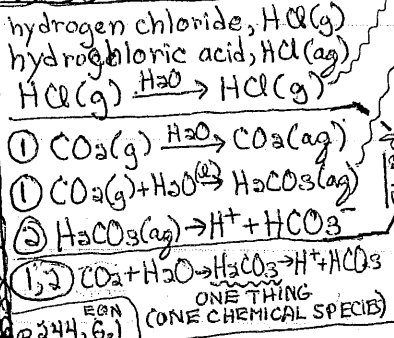 hydrogen chloride, HCl(g)
hydrochloric acid, HCl(aq)
HCl(g) H2O→ HCl(g)
① CO2(g) H2O→ CO2(aq)
① CO2(g)+H2O(l)→ H2CO3(aq)
② H2CO3(aq)→H⁺+HCO3⁻
1,2 CO2+H2O→H2CO3→H⁺+HCO3
ONE THING
EQN (ONE CHEMICAL SPECIES)
p.244, 6.1